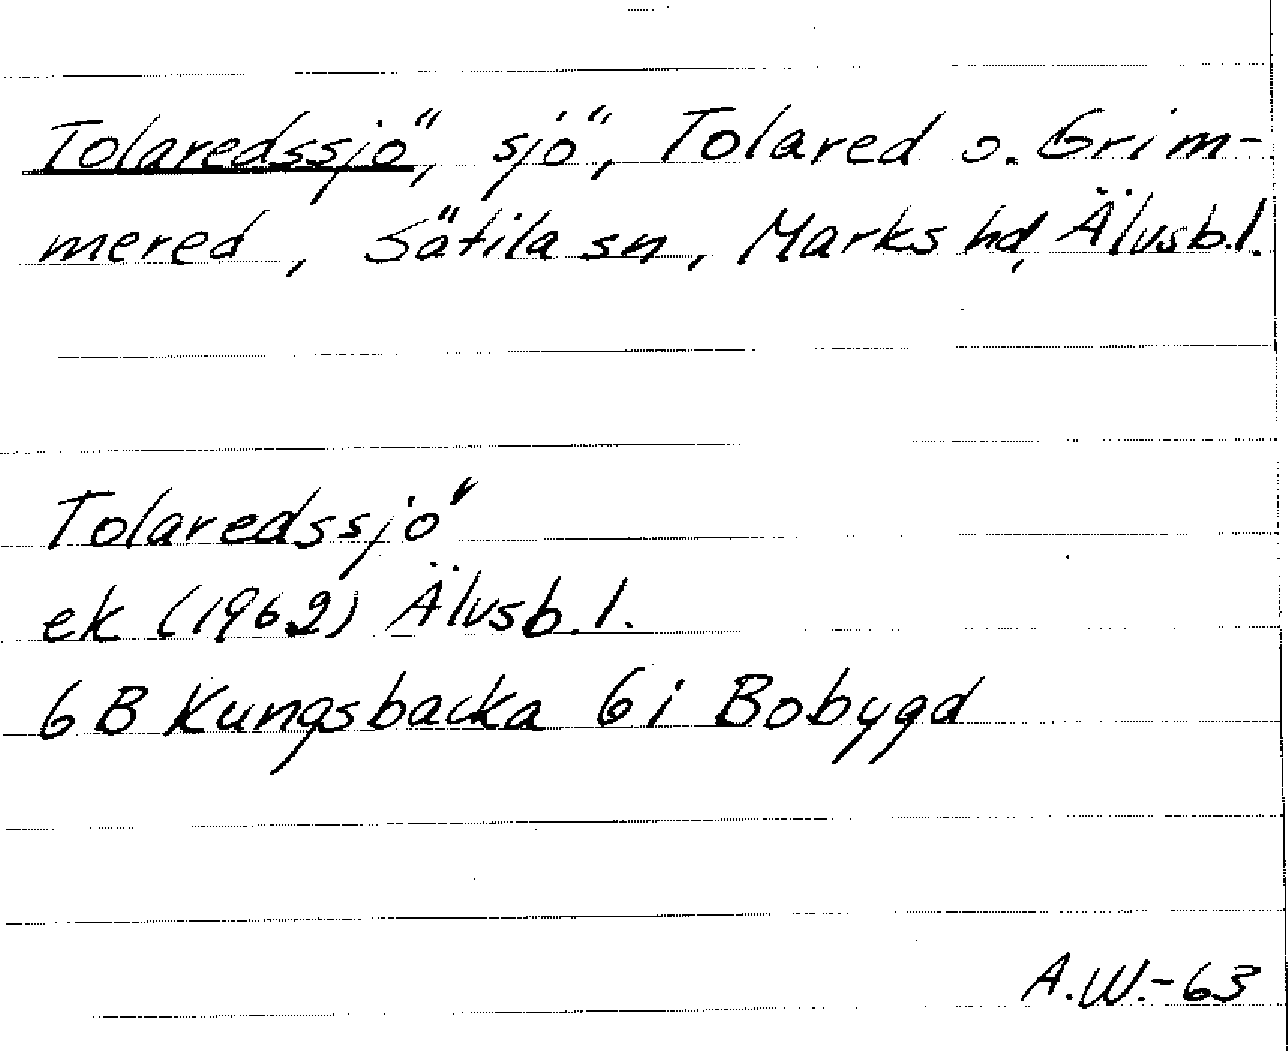 Tolaredssjö, sjö, Tolared o. Grim-
mered, Sätila sn, Marks hd, Älvsb.l.
Tolaredssjö
ek (1962) Älvsb.l.
6B Kungsbacka 6i Bobygd
A.W.-63